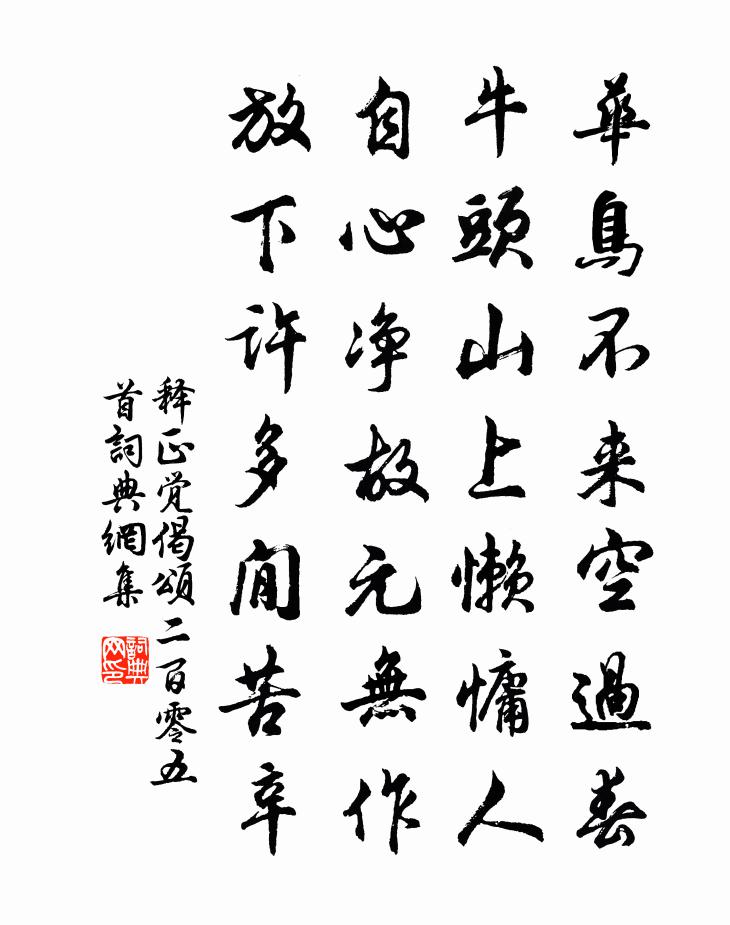 華鳥不来空過春
牛頭山上懶慵人
自心净故元無作
放下許多閒苦辛
释正觉偈頌二百零五
首詞典網集
詞典网印